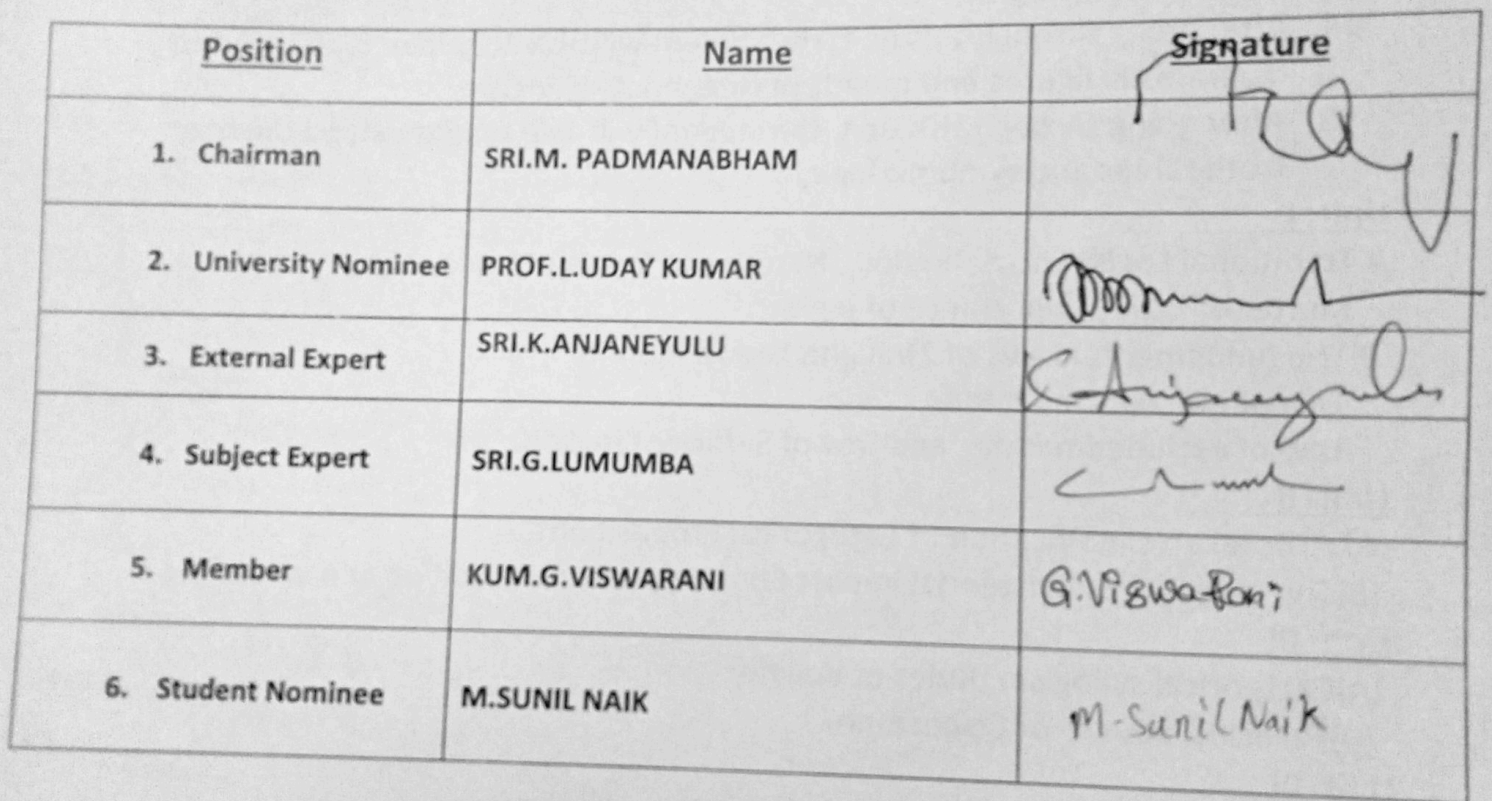 Position Name Signature
1. Chairman SRI.M. PADMANABHAM
2. University Nominee PROF.L.UDAY KUMAR
3. External Expert SRI.K.ANJANEYULU K Anjaneyulu
4. Subject Expert SRI.G.LUMUMBA
5. Member KUM.G.VISWARANI G.ViswaRani
6. Student Nominee M.SUNIL NAIK M-Sunil Naik